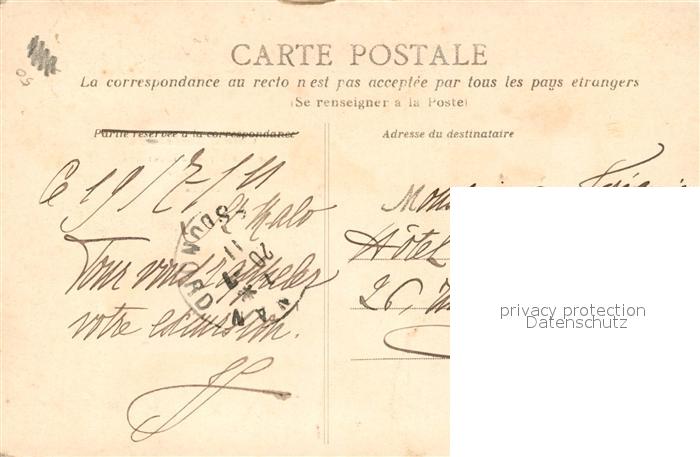 50
CARTE POSTALE
La correspondance au recto n'est pas acceptée par tous les pays étrangers
(Se renseigner à la Poste)
Partie réservée à la correspondance
Adresse du destinataire
Ce 19/7/11
St Malo
Pour vous rappeler
votre excursion.
Hôtel
26,
20 -7
11
privacy protection
Datenschutz